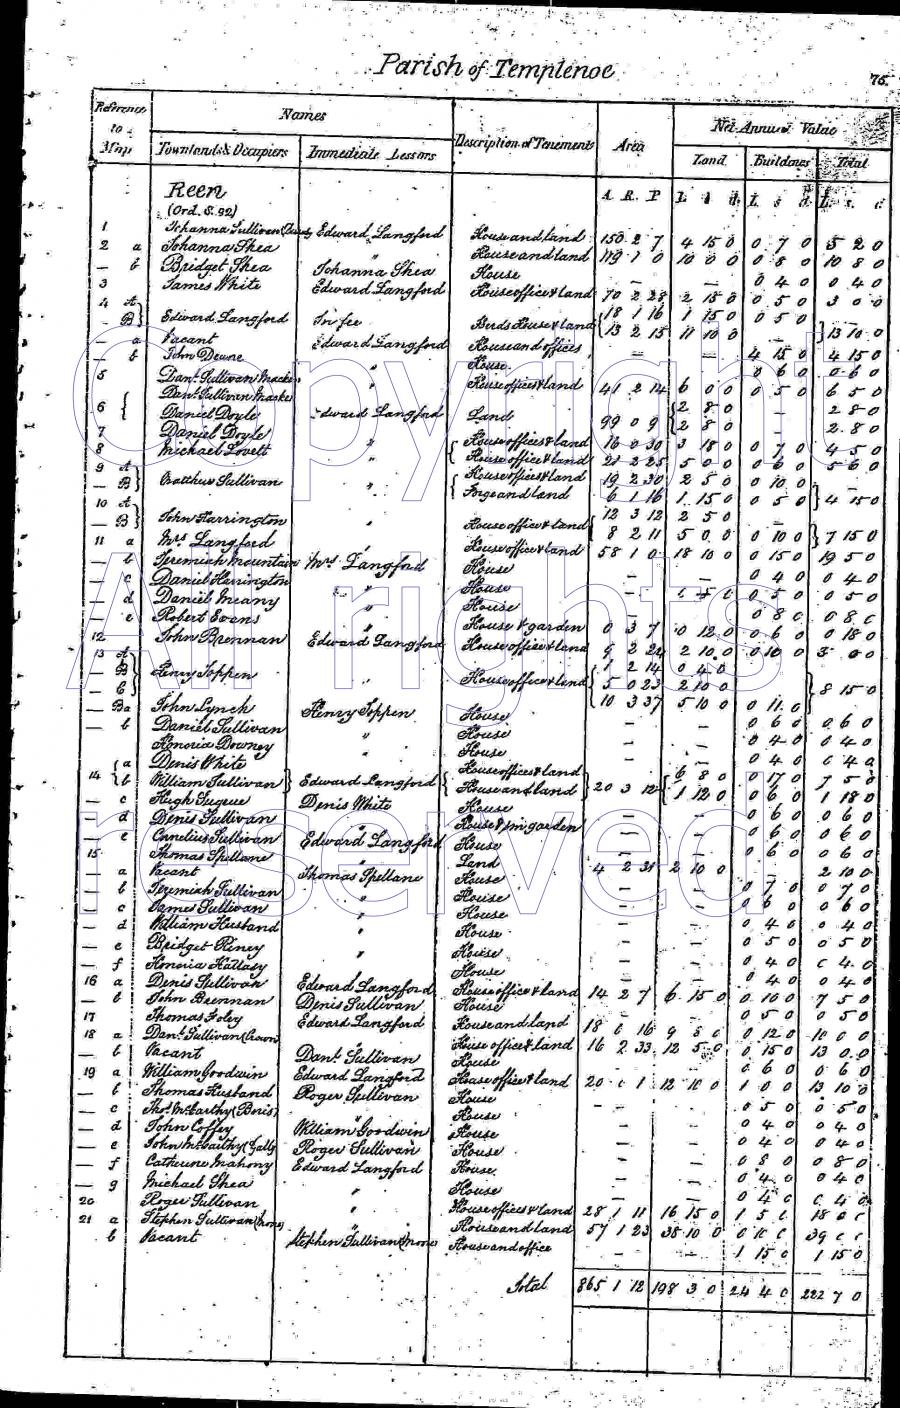 Parish of Templenoe
75.
Reference to Map
Names
Townlands & Occupiers
Immediate Lessors
Description of Tenements
Area
Net Annual Value
Land
Buildings
Total
Reen
(Ord. S. 92)
A R P L s d L s d L s d
1 Johanna Sullivan Edward Langford House and land 150 2 7 4 15 0 0 7 0 5 2 0
2 a Johanna Shea " House and land 119 1 0 10 0 0 0 8 0 10 8 0
— b Bridget Shea Johanna Shea House — — 0 4 0 0 4 0
3 James White Edward Langford House office & land 70 2 28 2 15 0 0 5 0 3 0 0
4 A Edward Langford In fee Herds House & land 18 1 16 1 15 0 0 5 0
— B 13 2 15 11 10 0 13 10 0
— a Vacant Edward Langford House and offices — — 4 15 0 4 15 0
— b John Downe " House 0 6 0 0 6 0
5 Danl. Sullivan Mackes " House offices & land 41 2 14 6 0 0 0 5 0 6 5 0
6 Danl. Sullivan Mackes Edward Langford Land 99 0 9 2 8 0 — 2 8 0
Daniel Doyle 2 8 0 — 2 8 0
7 Daniel Doyle " House offices & land 16 0 30 3 18 0 0 7 0 4 5 0
8 Michael Lovett " House office & land 21 2 25 5 0 0 0 6 0 5 6 0
9 A Sullivan " House offices & land 19 2 30 2 5 0 0 10 0
— B Forge and land 6 1 16 1 15 0 0 5 0 4 15 0
10 A John Harrington " House office & land 12 3 12 2 5 0 —
— B 8 2 11 5 0 0 0 10 0 7 15 0
11 a Mrs Langford " House office & land 58 1 0 18 10 0 0 15 0 19 5 0
— b Jeremiah Mountain Mrs Langford House — — 0 4 0 0 4 0
— c Daniel Harrington " House — 0 5 0 0 5 0
— d Daniel Meany " House
— e Robert Evans " House & garden 0 3 7 0 12 0 0 6 0 0 18 0
12 John Brennan Edward Langford House office & land 9 2 24 2 10 0 0 10 0 3 0 0
13 A Henry Toppen " House office & land 1 2 14 0 4 0
— B 5 0 23 2 10 0 8 15 0
— C 10 3 37 5 10 0 0 11 0
— Ba John Lynch Henry Toppen House — — 0 6 0 0 6 0
— b Daniel Sullivan " House — — 0 4 0 0 4 0
Honoria Downey " House — — 0 4 0 0 4 0
14 a Denis White Edward Langford House offices & land 20 3 12 6 8 0 0 17 0 7 5 0
b William Sullivan House and land 1 12 0 0 6 0 1 18 0
— c Hugh Sugrue Denis White House — — 0 6 0 0 6 0
— d Denis Sullivan " House & sm. garden — — 0 6 0 0 6 0
— e Cornelius Sullivan Edward Langford House — — 0 6 0 0 6 0
15 Thomas Spellane " Land 4 2 31 2 10 0 — 2 10 0
— a Vacant Thomas Spellane House — — 0 7 0 0 7 0
— b Jeremiah Sullivan " House — — 0 6 0 0 6 0
— c James Sullivan " House — — 0 4 0 0 4 0
— d William Husband " House — — 0 5 0 0 5 0
— e Bridget Riney " House — — 0 4 0 0 4 0
— f Honoria Hallasy " House — — 0 4 0 0 4 0
16 a Denis Sullivan Edward Langford House office & land 14 2 7 6 15 0 0 10 0 7 5 0
— b John Brennan Denis Sullivan House — — 0 5 0 0 5 0
17 Thomas Foley Edward Langford House and land 18 0 16 9 8 0 0 12 0 10 0 0
18 a Danl. Sullivan (Crown) " House office & land 16 2 33 12 5 0 0 15 0 13 0 0
— b Vacant Danl. Sullivan House 0 6 0 0 6 0
19 a William Goodwin Edward Langford House office & land 20 0 1 12 10 0 1 0 0 13 10 0
— b Thomas Husband Roger Sullivan House — — 0 5 0 0 5 0
— c Thos. McCarthy " House — — 0 4 0 0 4 0
— d John Coffey William Goodwin House — — 0 4 0 0 4 0
— e John McCarthy Roger Sullivan House — — 0 8 0 0 8 0
— f Catherine Mahony Edward Langford House — — 0 4 0 0 4 0
— g Michael Shea " House — — 0 4 0 0 4 0
20 Roger Sullivan " House offices & land 28 1 11 16 15 0 1 5 0 18 0 0
21 a Stephen Sullivan (more) " House and land 57 1 23 38 10 0 0 10 0 39 0 0
b Vacant Stephen Sullivan (more) House and office — — 1 15 0 1 15 0
Total 865 1 12 198 3 0 24 4 0 222 7 0
Copyright
All rights
reserved